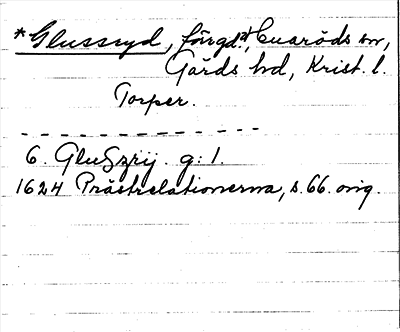 *Glussryd, färgd., Everöds sn,
Gärds hd, Krist. l.
Torper.
6. Glußzrij. g: 1.
1624 Prästrelationerna, s. 66. orig.